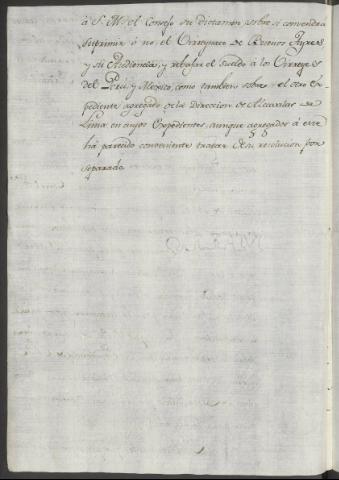 à S. M. el Consejo su dictamen sobre si convendrà
suprimir ò no el Virreynato de Buenos Ayres
y su Audiencia, y rebajar el sueldo à los Virreyes
del Peru, y Mexico, como tambien sobre el otro Ex-
pediente agregado de la Direccion de Alcavalas de
Lima en cuyos Expedientes, aunque agregados à este
hà parecido conveniente tratar de su resolucion por
separado.